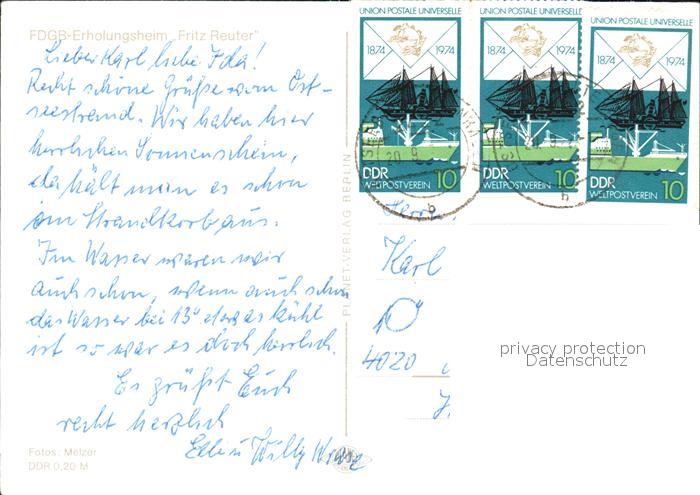 FDGB-Erholungsheim „Fritz Reuter"
Lieber Karl liebe Ida!
Recht schöne Grüße vom Ost-
seestrand. Wir haben hier
herrlichen Sonnenschein,
da hält man es schon
im Strandkorb aus.
Im Wasser waren wir
auch schon, wenn auch schon
das Wasser bei 13° etwas kühl
ist so war es doch herrlich.
Es grüßt Euch
recht herzlich
Elli u Willy
Fotos: Melzer
DDR 0,20 M
PLANET-VERLAG BERLIN
UNION POSTALE UNIVERSELLE
1874 1974
DDR 10
WELTPOSTVEREIN
UNION POSTALE UNIVERSELLE
1874 1974
DDR 10
WELTPOSTVEREIN
UNION POSTALE UNIVERSELLE
1874 1974
DDR 10
WELTPOSTVEREIN
20.9
Herrn
Karl
4020
privacy protection
Datenschutz